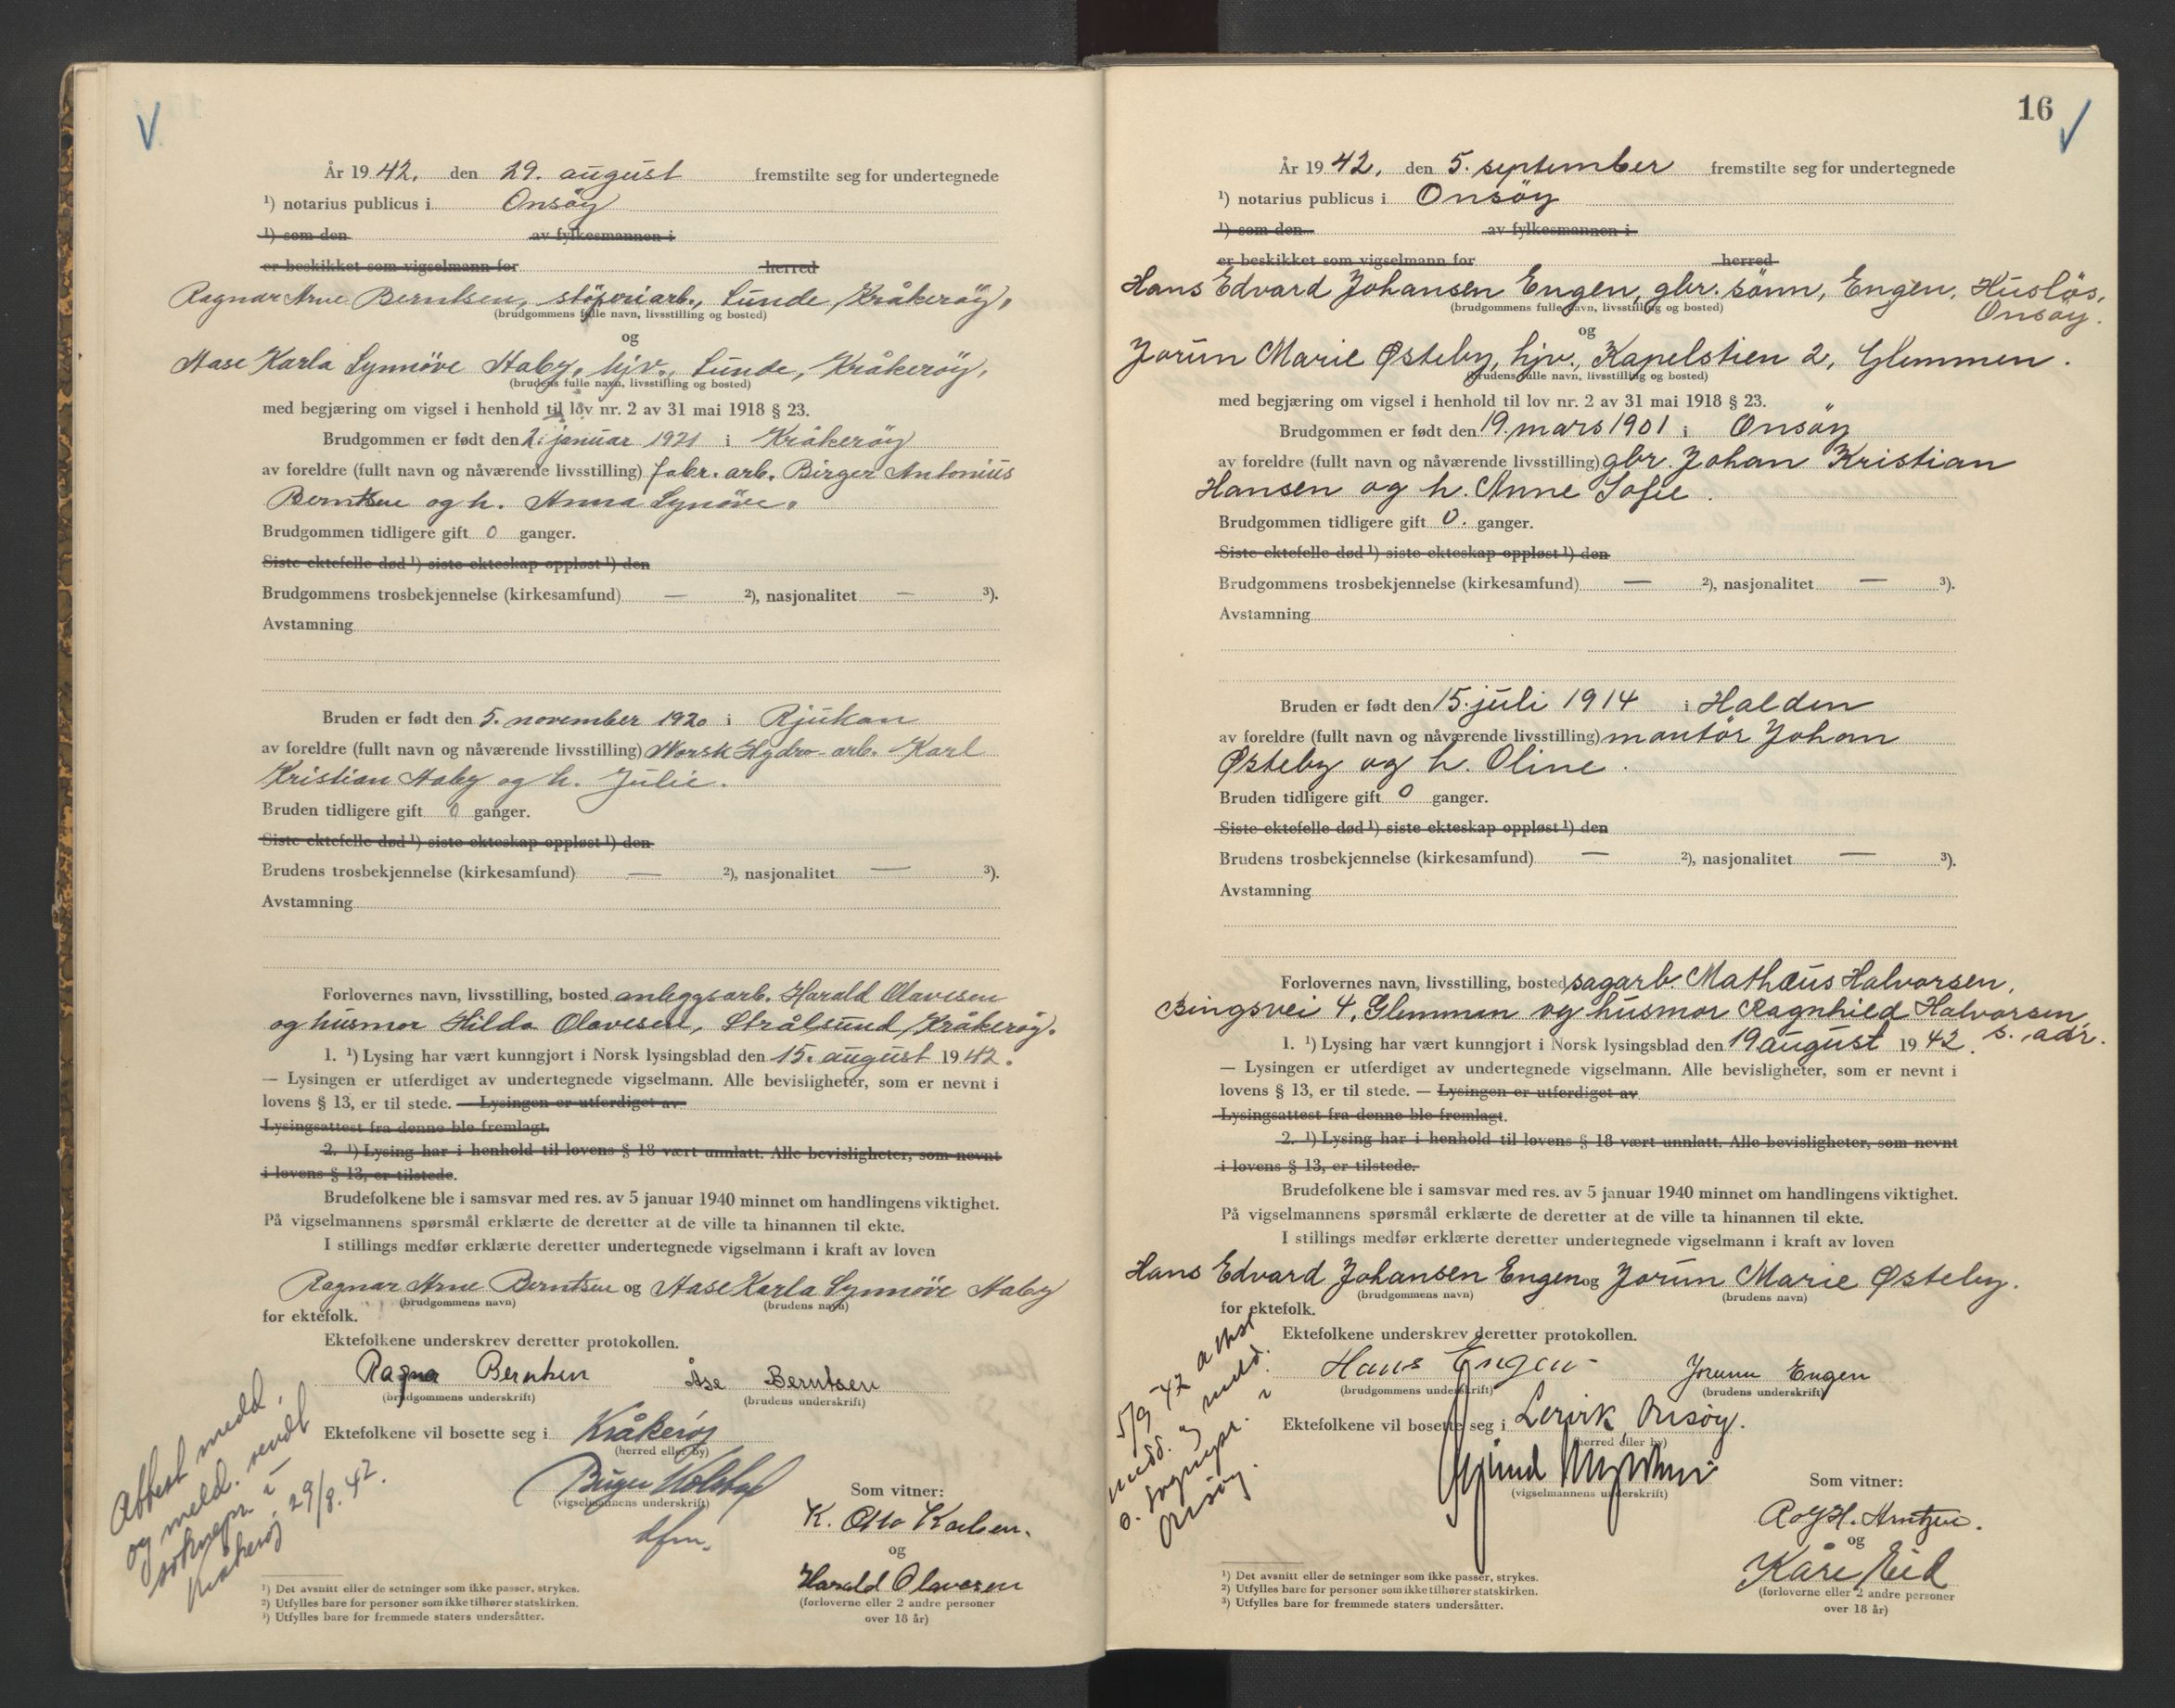 År 1942, den 29. august fremstilte seg for undertegnede
¹) notarius publicus i Onsöy
¹) som den av fylkesmannen i
er beskikket som vigselmann for herred
Ragnar Arne Berntsen, stöperiarb., Lunde, Kråkeröy,
(brudgommens fulle navn, livsstilling og bosted)
og
Aase Karla Synnöve Aaby, hjv., Lunde, Kråkeröy,
(brudens fulle navn, livsstilling og bosted)
med begjæring om vigsel i henhold til lov nr. 2 av 31 mai 1918 § 23.
Brudgommen er født den 2. januar 1921 i Kråkeröy
av foreldre (fullt navn og nåværende livsstilling) fabr. arb. Birger Antonius
Berntsen og h. Anna Synöve.
Brudgommen tidligere gift 0 ganger.
Siste ektefelle død ¹) siste ekteskap oppløst ¹) den
Brudgommens trosbekjennelse (kirkesamfund) — ²), nasjonalitet — ³).
Avstamning
Bruden er født den 5. november 1920 i Rjukan
av foreldre (fullt navn og nåværende livsstilling) Norsk Hydro-arb. Karl
Kristian Aaby og h. Julie.
Bruden tidligere gift 0 ganger.
Siste ektefelle død ¹) siste ekteskap oppløst ¹) den
Brudens trosbekjennelse (kirkesamfund) — ²), nasjonalitet — ³).
Avstamning
Forlovernes navn, livsstilling, bosted anleggsarb. Harald Olavesen
og husmor Hilda Olavesen, Strålsund, Kråkeröy.
1. ¹) Lysing har vært kunngjort i Norsk lysingsblad den 15. august 1942.
— Lysingen er utferdiget av undertegnede vigselmann. Alle bevisligheter, som er nevnt i
lovens § 13, er til stede. — Lysingen er utferdiget av
Lysingsattest fra denne ble fremlagt.
2. ¹) Lysing har i henhold til lovens § 18 vært unnlatt. Alle bevisligheter, som nevnt
i lovens § 13, er tilstede.
Brudefolkene ble i samsvar med res. av 5 januar 1940 minnet om handlingens viktighet.
På vigselmannens spørsmål erklærte de deretter at de ville ta hinannen til ekte.
I stillings medfør erklærte deretter undertegnede vigselmann i kraft av loven
Ragnar Arne Berntsen og Aase Karla Synnöve Aaby
(brudgommens navn) (brudens navn)
for ektefolk.
Ektefolkene underskrev deretter protokollen.
Ragnar Berntsen Åse Berntsen
(brudgommens underskrift) (brudens underskrift)
Ektefolkene vil bosette seg i Kråkerøy
(herred eller by)
Birger
(vigselmannens underskrift)
Som vitner:
K. Otto Karlsen.
og
Harald Olavesen
(forloverne eller 2 andre personer
over 18 år)
Attest medd.
og meld. sendt
soknepr. i
Kråkerøy 29/8. 42.
¹) Det avsnitt eller de setninger som ikke passer, strykes.
²) Utfylles bare for personer som ikke tilhører statskirken.
³) Utfylles bare for fremmede staters undersåtter.
16
År 1942, den 5. september fremstilte seg for undertegnede
¹) notarius publicus i Onsöy
¹) som den av fylkesmannen i
er beskikket som vigselmann for herred
Hans Edvard Johansen Engen, gbr. sönn, Engen, Huslös,
Onsöy.
(brudgommens fulle navn, livsstilling og bosted)
og
Jorun Marie Østeby, hjv., Kapelstien 2, Glemmen.
(brudens fulle navn, livsstilling og bosted)
med begjæring om vigsel i henhold til lov nr. 2 av 31 mai 1918 § 23.
Brudgommen er født den 19. mars 1901 i Onsöy
av foreldre (fullt navn og nåværende livsstilling) gbr. Johan Kristian
Hansen og h. Anne Sofie.
Brudgommen tidligere gift 0. ganger.
Siste ektefelle død ¹) siste ekteskap oppløst ¹) den
Brudgommens trosbekjennelse (kirkesamfund) — ²), nasjonalitet — ³).
Avstamning
Bruden er født den 15. juli 1914 i Halden
av foreldre (fullt navn og nåværende livsstilling) montör Johan
Østeby og h. Oline.
Bruden tidligere gift 0 ganger.
Siste ektefelle død ¹) siste ekteskap oppløst ¹) den
Brudens trosbekjennelse (kirkesamfund) — ²), nasjonalitet — ³).
Avstamning
Forlovernes navn, livsstilling, bosted sagarb. Mathæus Halvorsen,
Bingsvei 4, Glemmen og husmor Ragnhild Halvorsen,
s. adr.
1. ¹) Lysing har vært kunngjort i Norsk lysingsblad den 19 august 1942.
— Lysingen er utferdiget av undertegnede vigselmann. Alle bevisligheter, som er nevnt i
lovens § 13, er til stede. — Lysingen er utferdiget av
Lysingsattest fra denne ble fremlagt.
2. ¹) Lysing har i henhold til lovens § 18 vært unnlatt. Alle bevisligheter, som nevnt
i lovens § 13, er tilstede.
Brudefolkene ble i samsvar med res. av 5 januar 1940 minnet om handlingens viktighet.
På vigselmannens spørsmål erklærte de deretter at de ville ta hinannen til ekte.
I stillings medfør erklærte deretter undertegnede vigselmann i kraft av loven
Hans Edvard Johansen Engen og Jorun Marie Østeby.
(brudgommens navn) (brudens navn)
for ektefolk.
Ektefolkene underskrev deretter protokollen.
Hans Engen Jorunn Engen
(brudgommens underskrift) (brudens underskrift)
Ektefolkene vil bosette seg i Lervik, Onsøy.
(herred eller by)
(vigselmannens underskrift)
Som vitner:
Rolf H. Arntzen.
og
Kåre Eid
(forloverne eller 2 andre personer
over 18 år)
5/9-42 attest
medd. og meld.
s. sognepr. i
Onsøy.
¹) Det avsnitt eller de setninger som ikke passer, strykes.
²) Utfylles bare for personer som ikke tilhører statskirken.
³) Utfylles bare for fremmede staters undersåtter.